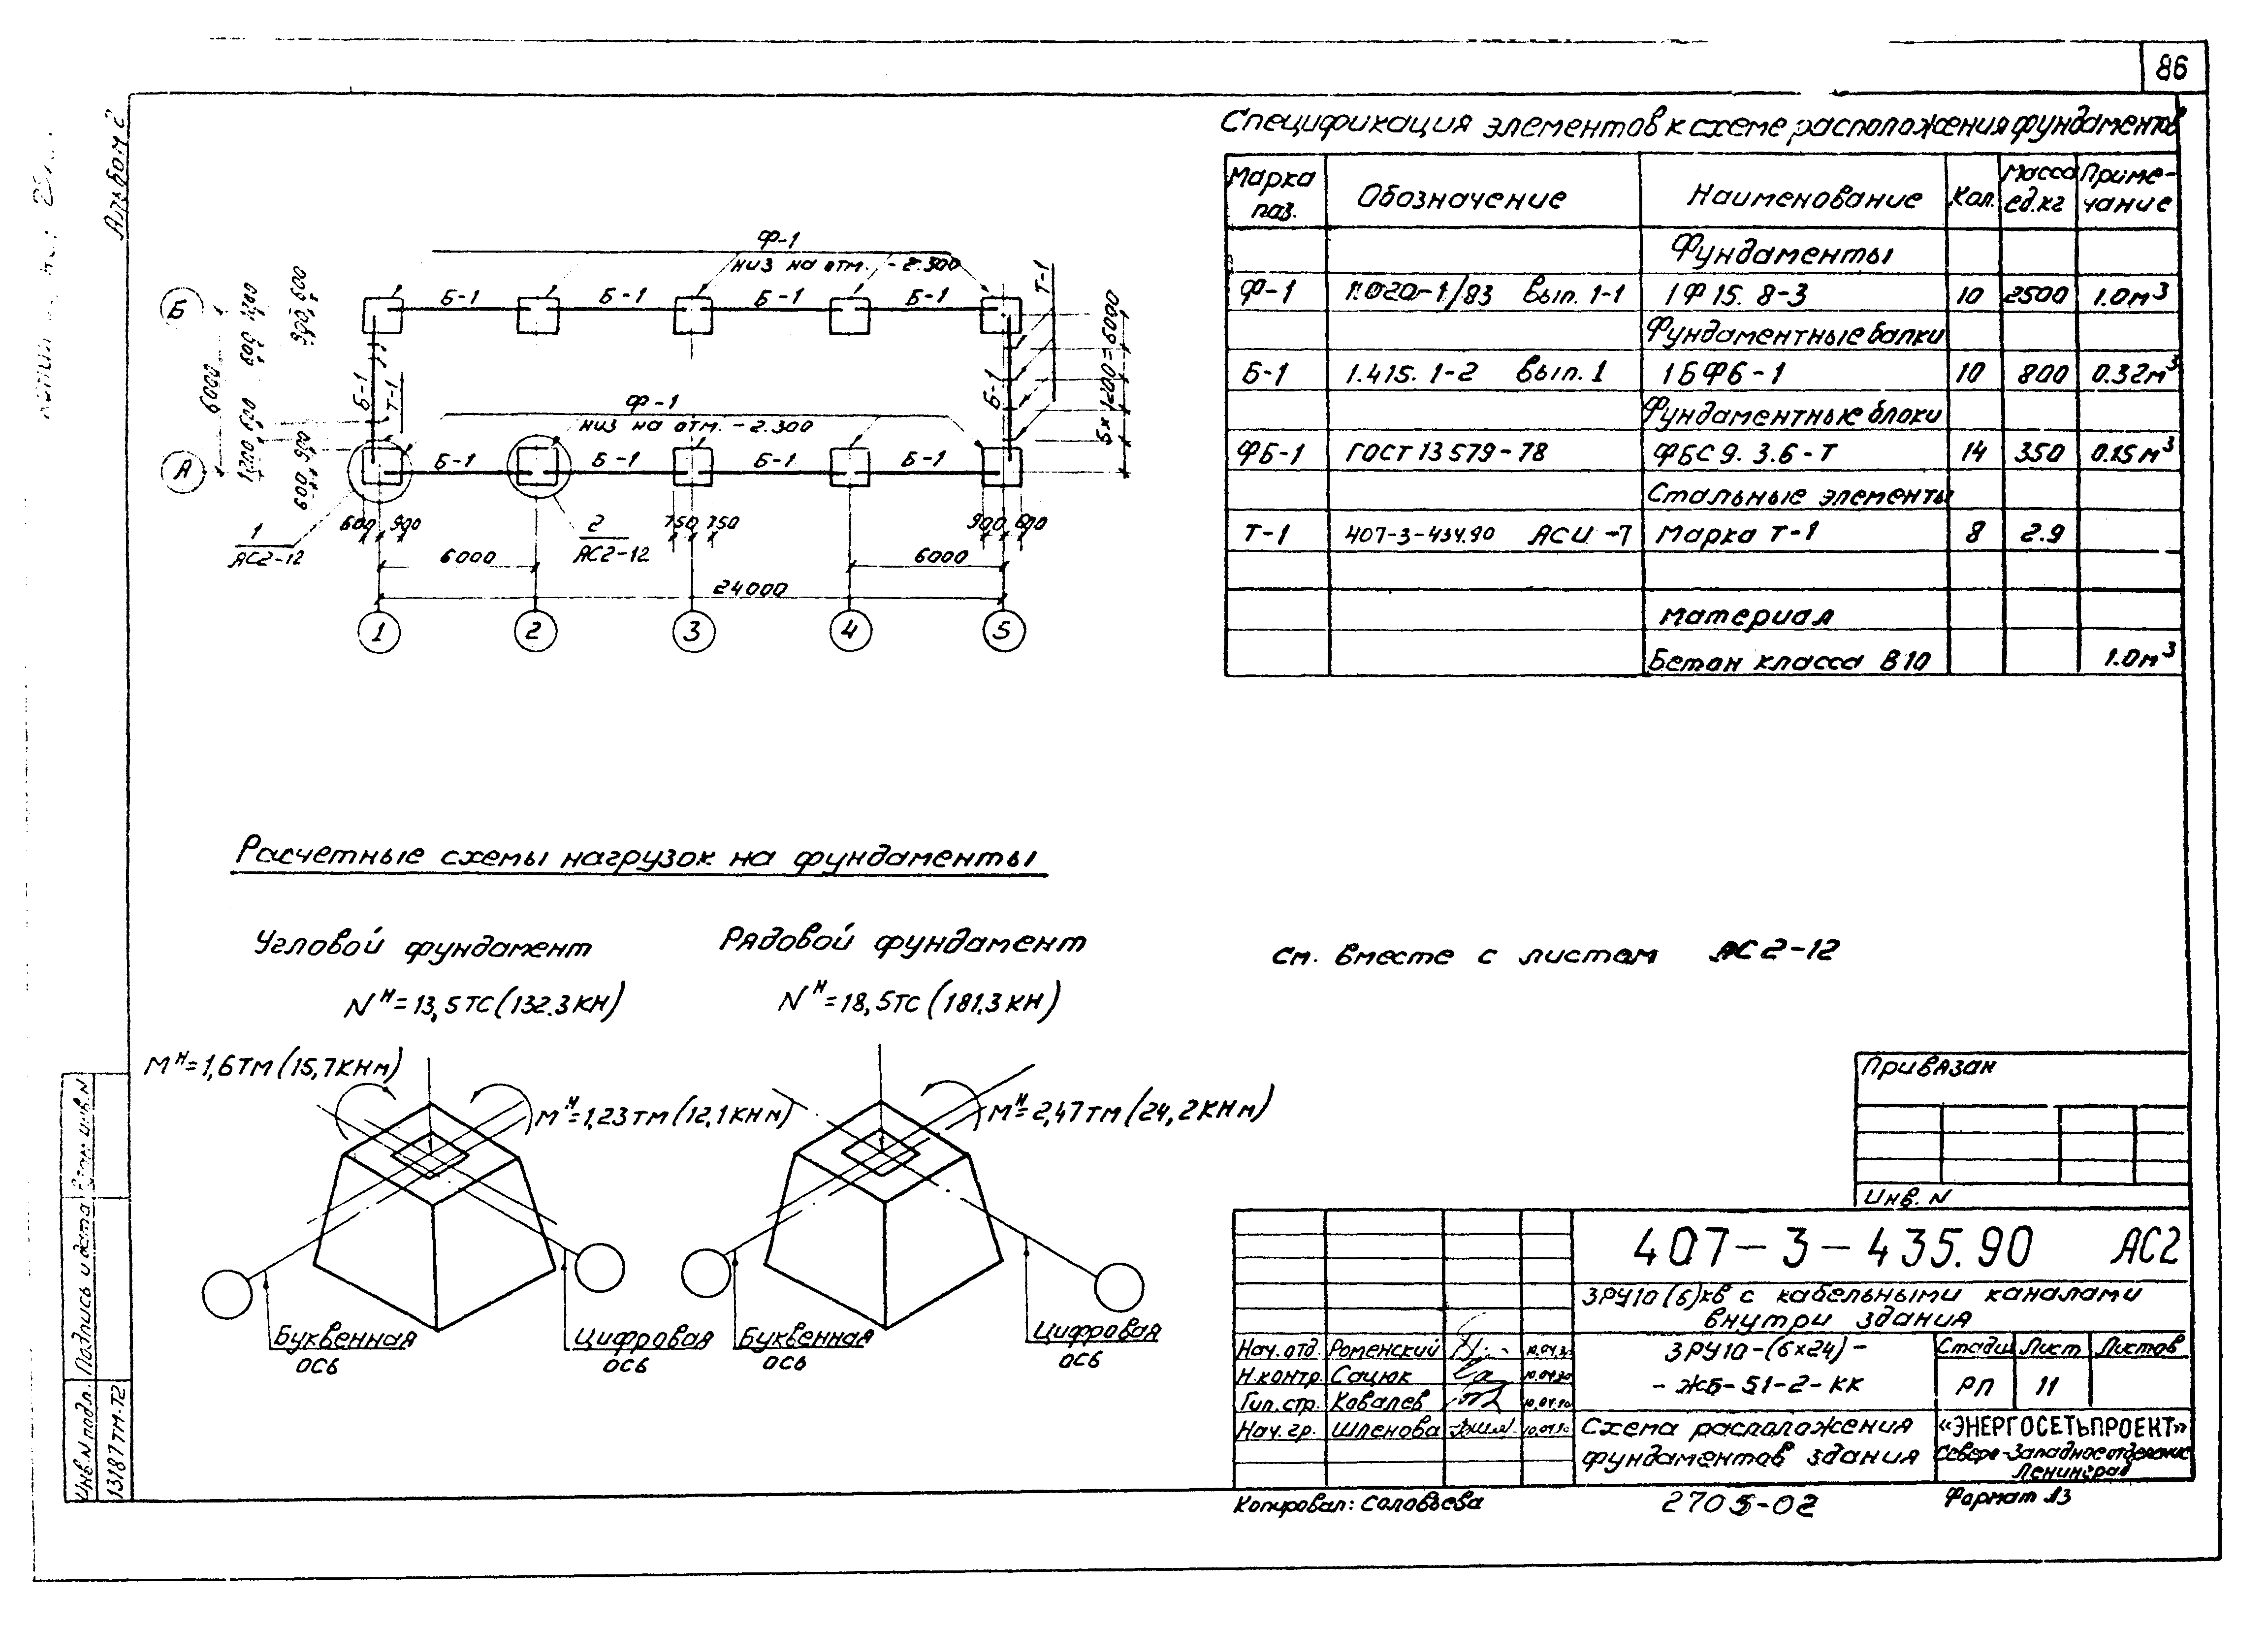 86
Альбом 2
Спецификация элементов к схеме расположения фундаментов
Марка поз. Обозначение Наименование Кол. Масса ед.кг Приме-чание
Фундаменты
Ф-1 1.020-1/83 Вып. 1-1 1Ф 15. 8-3 10 2500 1.0м³
Фундаментные балки
Б-1 1.415. 1-2 Вып. 1 1БФ6-1 10 800 0.32м³
Фундаментные блоки
ФБ-1 ГОСТ 13 579-78 ФБС 9. 3.6-Т 14 350 0.15м³
Стальные элементы
Т-1 407-3-434.90 АСИ-7 Марка Т-1 8 2.9
Материал
Бетон класса В10 1.0м³
Ф-1
низ на отм. -2.300
Б
Б-1 Б-1 Б-1 Б-1
Т-1
600
900
1200
600
6000
600
1200
900
600
Б-1
Т-1
Б-1
5х1200=6000
Ф-1
низ на отм. -2.300
А
Б-1 Б-1 Б-1 Б-1
600 900 750 750 900 600
1
АС2-12
2
АС2-12
6000 6000
24000
1 2 3 4 5
Расчетные схемы нагрузок на фундаменты
Угловой фундамент
Nᴴ=13,5тс(132.3кН)
Mᴴ=1,6тм(15,7кНм)
Mᴴ=1,23тм(12,1кНм)
Буквенная ось
Цифровая ось
Рядовой фундамент
Nᴴ=18,5тс(181.3кН)
Mᴴ=2,47тм(24,2кНм)
Буквенная ось
Цифровая ось
см. вместе с листом АС2-12
Привязан
Инв. N
407-3-435.90 АС2
ЗРУ10(6)кв с кабельными каналами
внутри здания
Нач. отд. Роменский
Н.контр. Сацюк 10.04.90
Гип.стр. Ковалев 10.04.90
Нач. гр. Шленова 10.04.90
ЗРУ10-(6х24)-
-ЖБ-51-2-КК
Стади Лист Листов
РП 11
Схема расположения
фундаментов здания
«ЭНЕРГОСЕТЬПРОЕКТ»
Северо-Западное отделение
Ленинград
Инв.N подл. Подпись и дата Взам.инв.N
13187тм-Т2
Копировал: Соловьева
2705-02
Формат А3